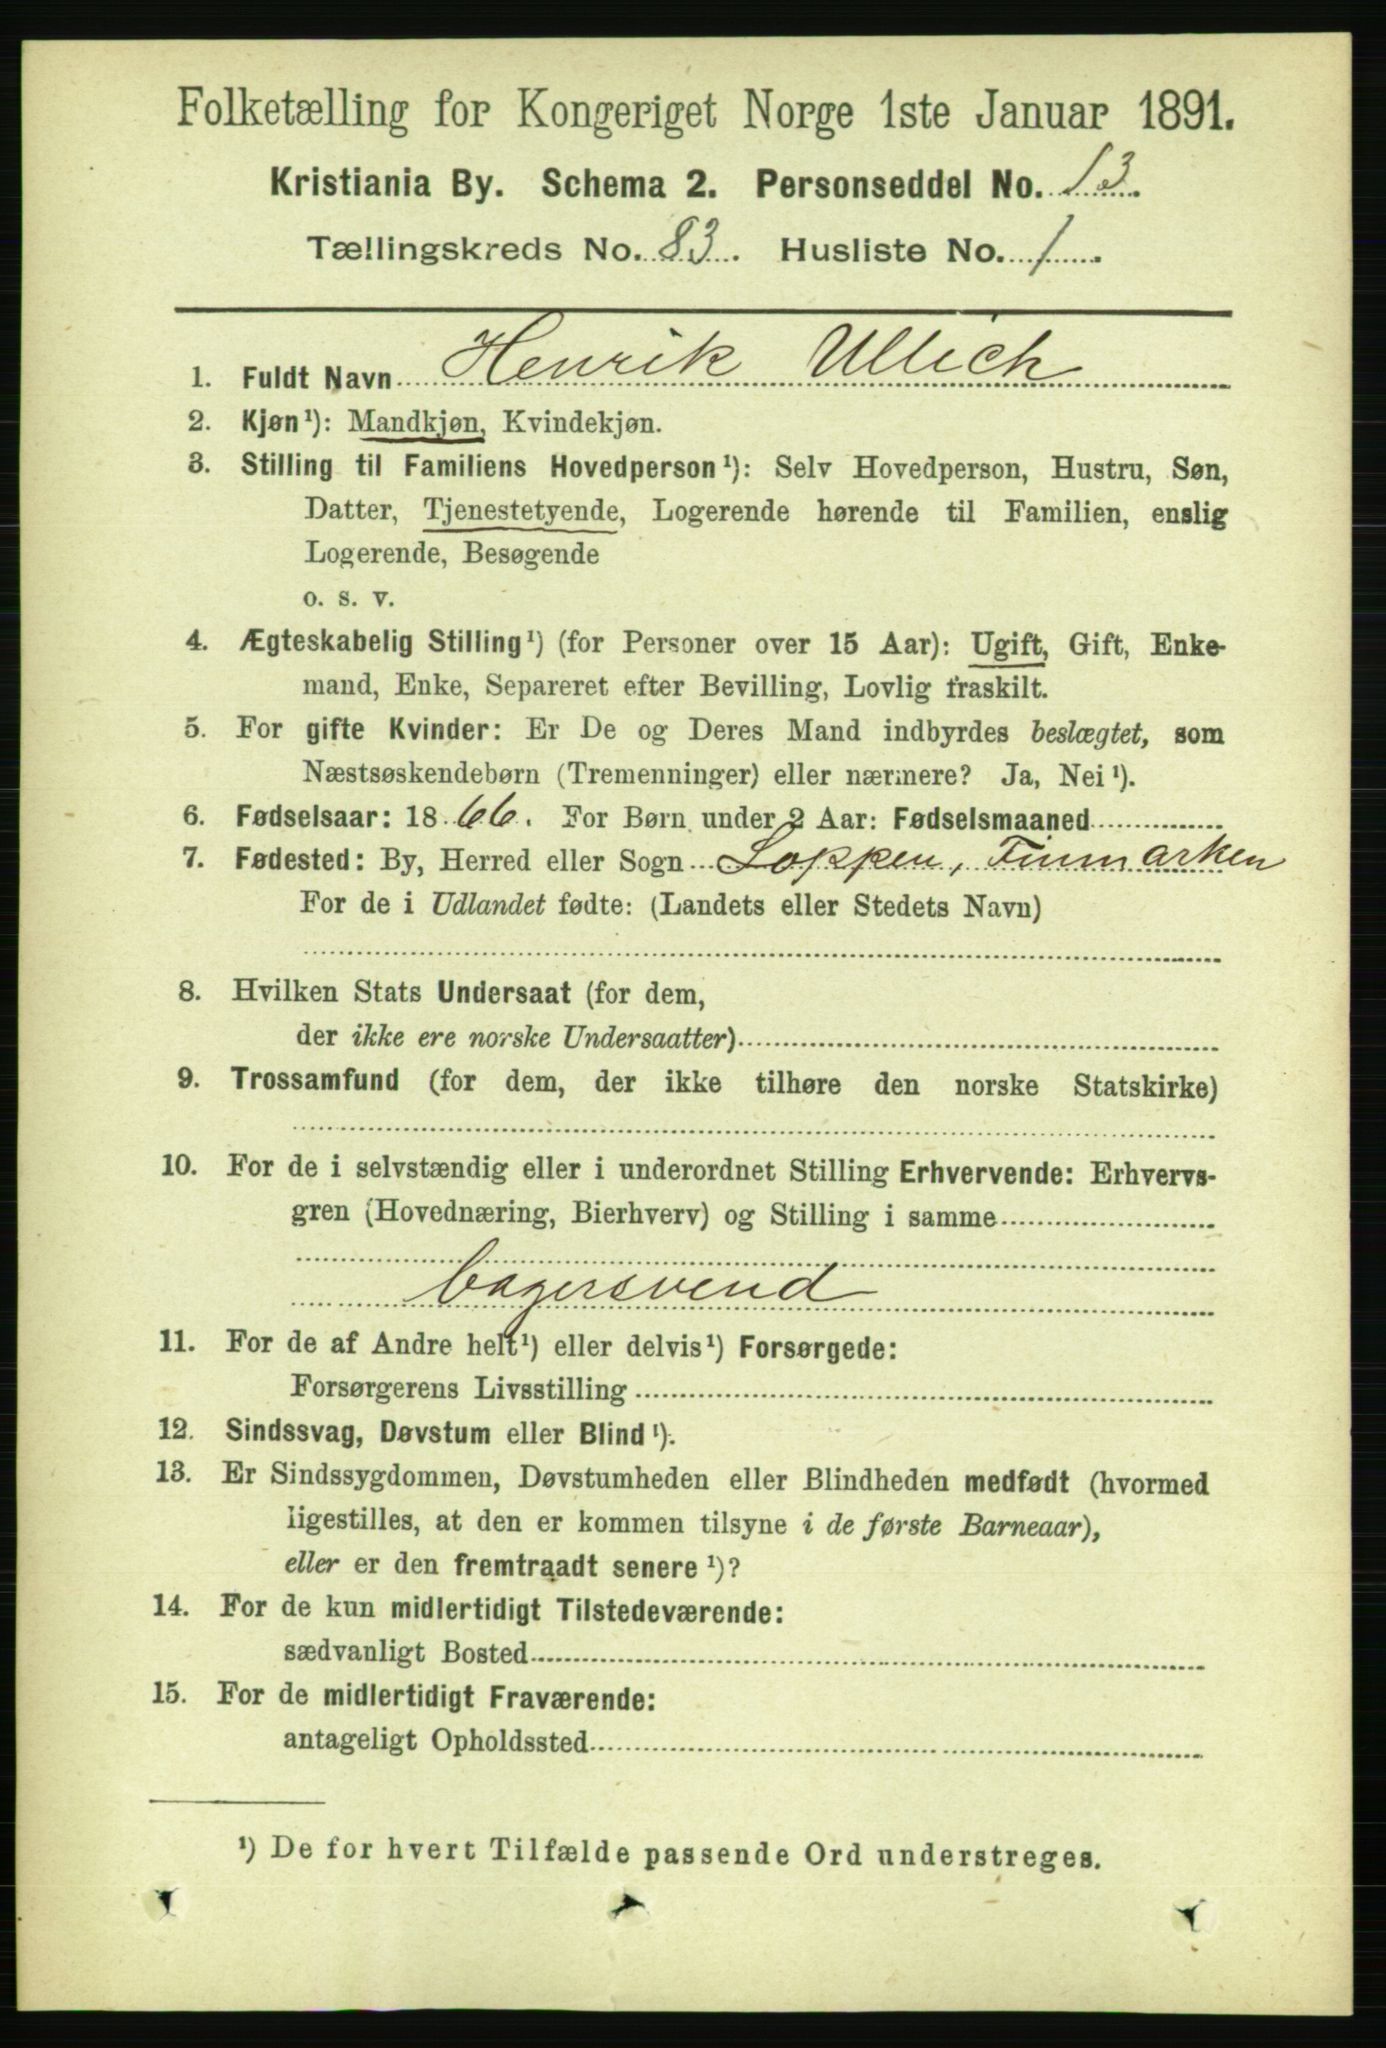 Folketælling for Kongeriget Norge 1ste Januar 1891.
Kristiania By. Schema 2. Personseddel No. 13.
Tællingskreds No. 83. Husliste No. 1
1. Fuldt Navn Henrik Ullich
2. Kjøn¹): Mandkjøn, Kvindekjøn.
3. Stilling til Familiens Hovedperson¹): Selv Hovedperson, Hustru, Søn,
Datter, Tjenestetyende, Logerende hørende til Familien, enslig
Logerende, Besøgende
o. s. v.
4. Ægteskabelig Stilling¹) (for Personer over 15 Aar): Ugift, Gift, Enke-
mand, Enke, Separeret efter Bevilling, Lovlig fraskilt.
5. For gifte Kvinder: Er De og Deres Mand indbyrdes beslægtet, som
Næstsøskendebørn (Tremenninger) eller nærmere? Ja, Nei¹).
6. Fødselsaar: 1866. For Børn under 2 Aar: Fødselsmaaned
7. Fødested: By, Herred eller Sogn Loppen, Finmarken
For de i Udlandet fødte: (Landets eller Stedets Navn)
8. Hvilken Stats Undersaat (for dem,
der ikke ere norske Undersaatter)
9. Trossamfund (for dem, der ikke tilhøre den norske Statskirke)
10. For de i selvstændig eller i underordnet Stilling Erhvervende: Erhvervs-
gren (Hovednæring, Bierhverv) og Stilling i samme
bagersvend
11. For de af Andre helt¹) eller delvis¹) Forsørgede:
Forsørgerens Livsstilling
12. Sindssvag, Døvstum eller Blind¹).
13. Er Sindssygdommen, Døvstumheden eller Blindheden medfødt (hvormed
ligestilles, at den er kommen tilsyne i de første Barneaar),
eller er den fremtraadt senere¹)?
14. For de kun midlertidigt Tilstedeværende:
sædvanligt Bosted
15. For de midlertidigt Fraværende:
antageligt Opholdssted
¹) De for hvert Tilfælde passende Ord understreges.